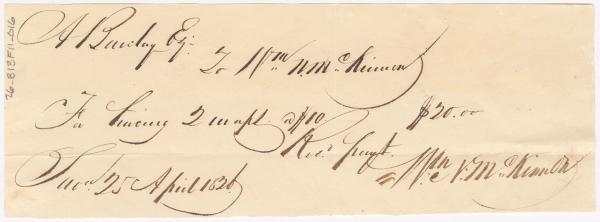 A Barclay Esq.
To Wm. N. McKinnon
For tracing 2 maps a $10 $20.00
Recd. payt.
Wm. N. McKinnon
Savh. 25 April 1826
26-813F11-016